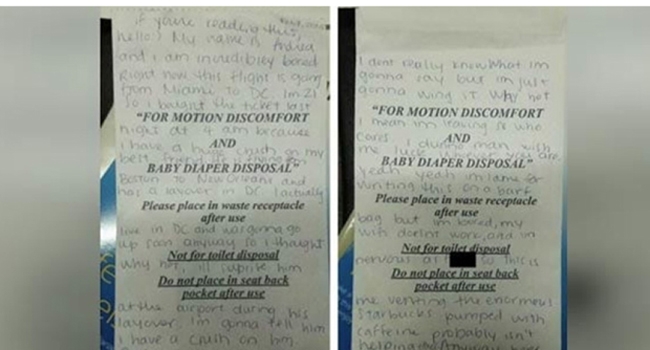 if you're reading this,
hello! My name is Andrea
and I am incredibly bored
Right now this flight is going
from Miami to DC. Im 21
so I bought the ticket last
"FOR MOTION DISCOMFORT
night at 4 am because
AND
I have a huge crush on my
best friend. He is flying from
BABY DIAPER DISPOSAL"
Boston to New Orleans and
has a layover in DC. I actually
Please place in waste receptacle
after use
live in DC and was gonna go
up soon anyway so I thought
Not for toilet disposal
why not, I'll suprise him
Do not place in seat back
pocket after use
at the airport during his
layover. I'm gonna tell him
I have a crush on him
I dont really know what im
gonna say but im just
gonna wing it. Why not
"FOR MOTION DISCOMFORT
I mean im leaving it who
AND
cares. I dunno man wish
me luck wherever you are.
BABY DIAPER DISPOSAL"
yeah yeah im lame for
writing this on a barf
Please place in waste receptacle
after use
bag but im bored, my
wifi doesnt work, and im
Not for toilet disposal
nervous as so this is
Do not place in seat back
pocket after use
me venting the enormous
Starbucks pumped with
caffeine probably isn't
helping the